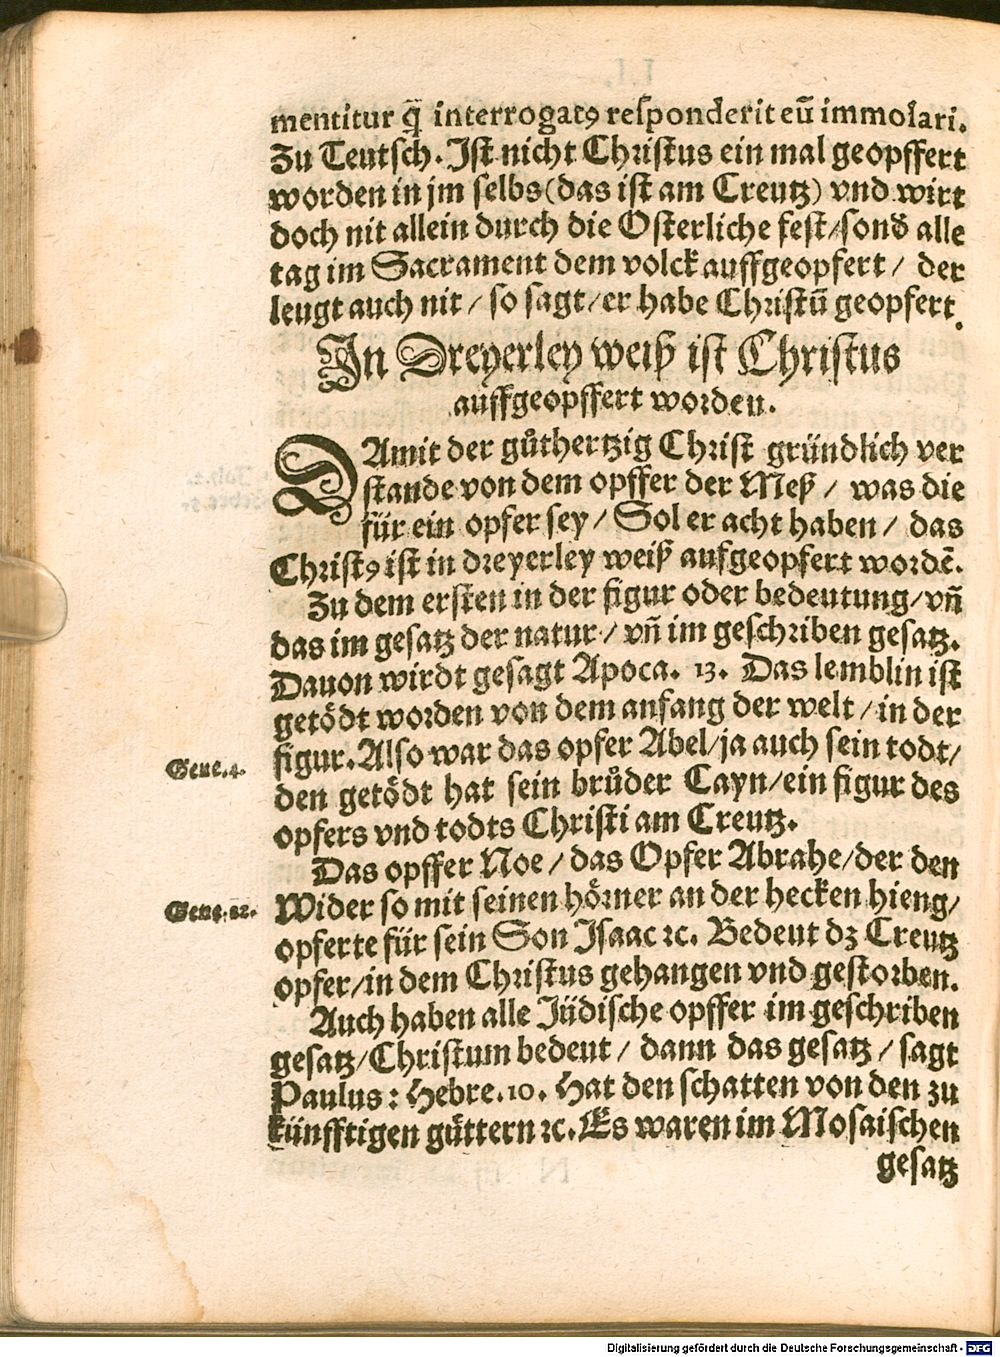 mentitur q̃ interrogatꝰ responderit eũ immolari.
Zu Teutsch. Ist nicht Christus ein mal geopffert
worden in jm selbs (das ist am Creutz) vnd wirt
doch nit allein durch die Osterliche fest / sond̃ alle
tag im Sacrament dem volck auffgeopfert / der
leugt auch nit / so sagt / er habe Christũ geopfert.
In Dreyerley weiß ist Christus
auffgeopffert worden.
DAmit der gůthertzig Christ gründlich ver
stande von dem opffer der Meß / was die
für ein opfer sey / Sol er acht haben / das
Christꝰ ist in dreyerley weiß aufgeopfert wordẽ.
Zu dem ersten in der figur oder bedeutung / vñ
das im gesatz der natur / vñ im geschriben gesatz.
Dauon wirdt gesagt Apoca. 13. Das lemblin ist
getödt worden von dem anfang der welt / in der
figur. Also war das opfer Abel / ja auch sein todt /
Gene. 4.
den getödt hat sein brůder Cayn / ein figur des
opfers vnd todts Christi am Creutz.
Das opffer Noe / das Opfer Abrahe / der den
Wider so mit seinen hörner an der hecken hieng /
Gene. 22.
opferte für sein Son Isaac ꝛc. Bedeut dz Creutz
opfer / in dem Christus gehangen vnd gestorben.
Auch haben alle Jüdische opffer im geschriben
gesatz / Christum bedeut / dann das gesatz / sagt
Paulus: Hebre. 10. Hat den schatten von den zu
künfftigen güttern ꝛc. Es waren im Mosaischen
gesatz
Digitalisierung gefördert durch die Deutsche Forschungsgemeinschaft - DFG